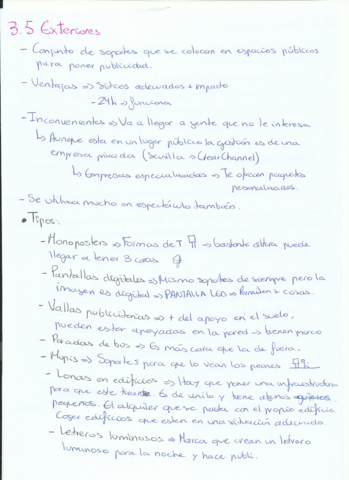 3.5 Exteriores
- Conjunto de soportes que se colocan en espacios públicos
para poner publicidad.
- Ventajas => Sitios adecuados + impacto
- 24h -> funciona
- Inconvenientes => Va a llegar a gente que no le interesa
↳ Aunque esta en un lugar público la gestión es de una
empresa privada (Sevilla -> ClearChannel)
↳ Empresas especializadas => Te ofrecen paquetes
personalizados.
- Se utiliza mucho en espectáculo también.
• Tipos:
- Monoposters => Formas de T bastante altura puede
llegar a tener 3 caras
- Pantallas digitales => Mismo soportes de siempre pero la
imagen es digital -> PANTALLA LED -> + cosas.
- Vallas publicitarias => + del apoyo en el suelo,
pueden estar apoyadas en la pared -> tienen marco
- Paradas de bus => Es más cara que la de fuera.
- Mupis => Soportes para que lo vean los peones
- Lonas en edificios => Hay que poner una infraestructura
para que este Es de vinilo y tiene
pequeños. El alquiler que se pacta con el propio edificio.
Coger edificios que esten en una situación adecuada.
- Letreros luminosos => Marca que crean un letrero
luminoso para la noche y hace publi.